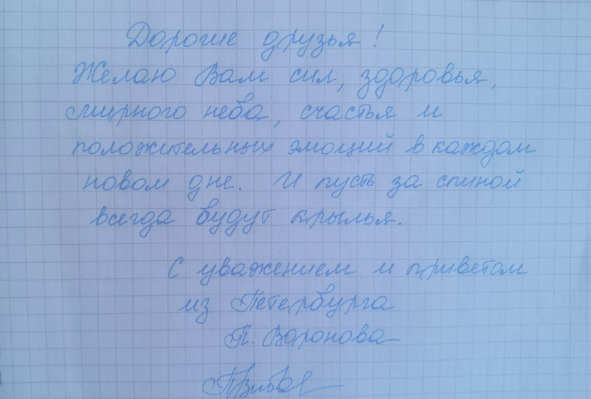 Дорогие друзья!
Желаю Вам сил, здоровья,
мирного неба, счастья и
положительных эмоций в каждом
новом дне. И пусть за спиной
всегда будут крылья.
С уважением и приветом
из Петербурга
П. Воронова